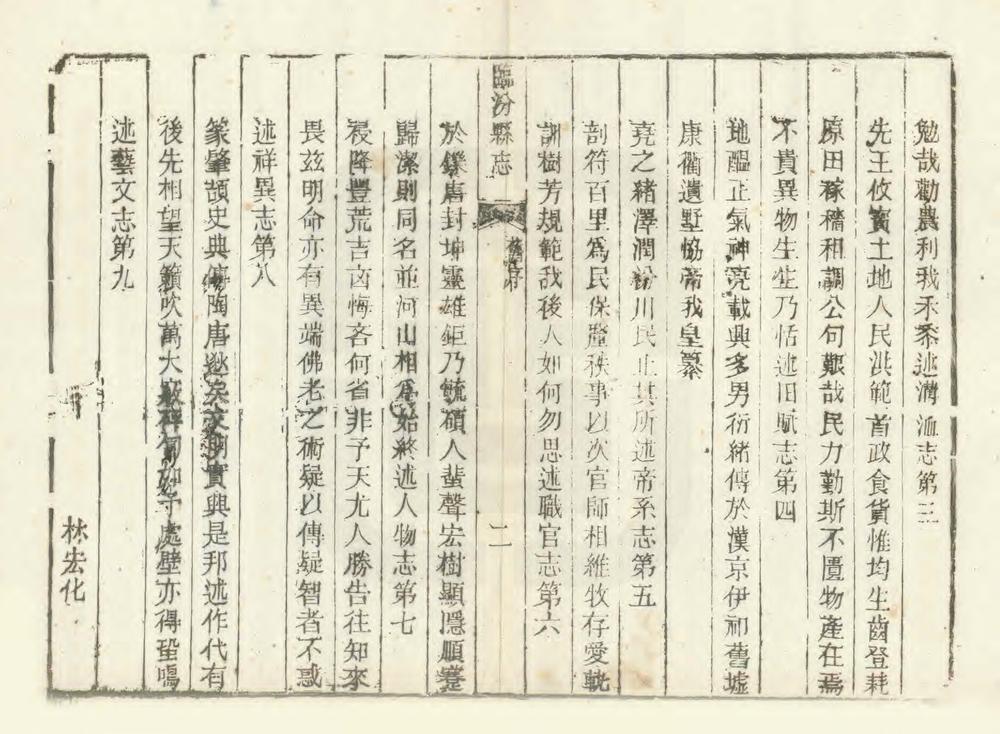 勉哉勸農利我禾黍述溝洫志第三
先王攸寳土地人民洪範首政食貨惟均生齒登耗
原田稼穡租調公旬艱哉民力勤斯不匱物產在焉
不貴異物生生乃恬述旧賦志第四
地醞正氣神堯載興多男衍緒傳於漢京伊祁舊墟
康衢遺墅恊帝我皇纂
堯之緒澤潤汾川民止其所述帝系志第五
剖符百里爲民保釐秩事以次官師相維牧存愛軌
訓樹芳規範我後人如何勿思述職官志第六
臨汾縣志
舊序
二
於鑠唐封坤靈雄鉅乃毓碩人蜚聲宏樹顯隱順蹇
歸潔則同名並河山相爲始終述人物志第七
祲降豐荒吉凶悔吝何省非予天尤人勝告往知來
畏兹明命亦有異端佛老之術疑以傳疑智者不惑
述祥異志第八
篆肇頡史典傳陶唐逖矣文明實興是邦述作代有
後先相望天籟吹萬大處壁亦得聖鳴
述藝文志第九
林宏化